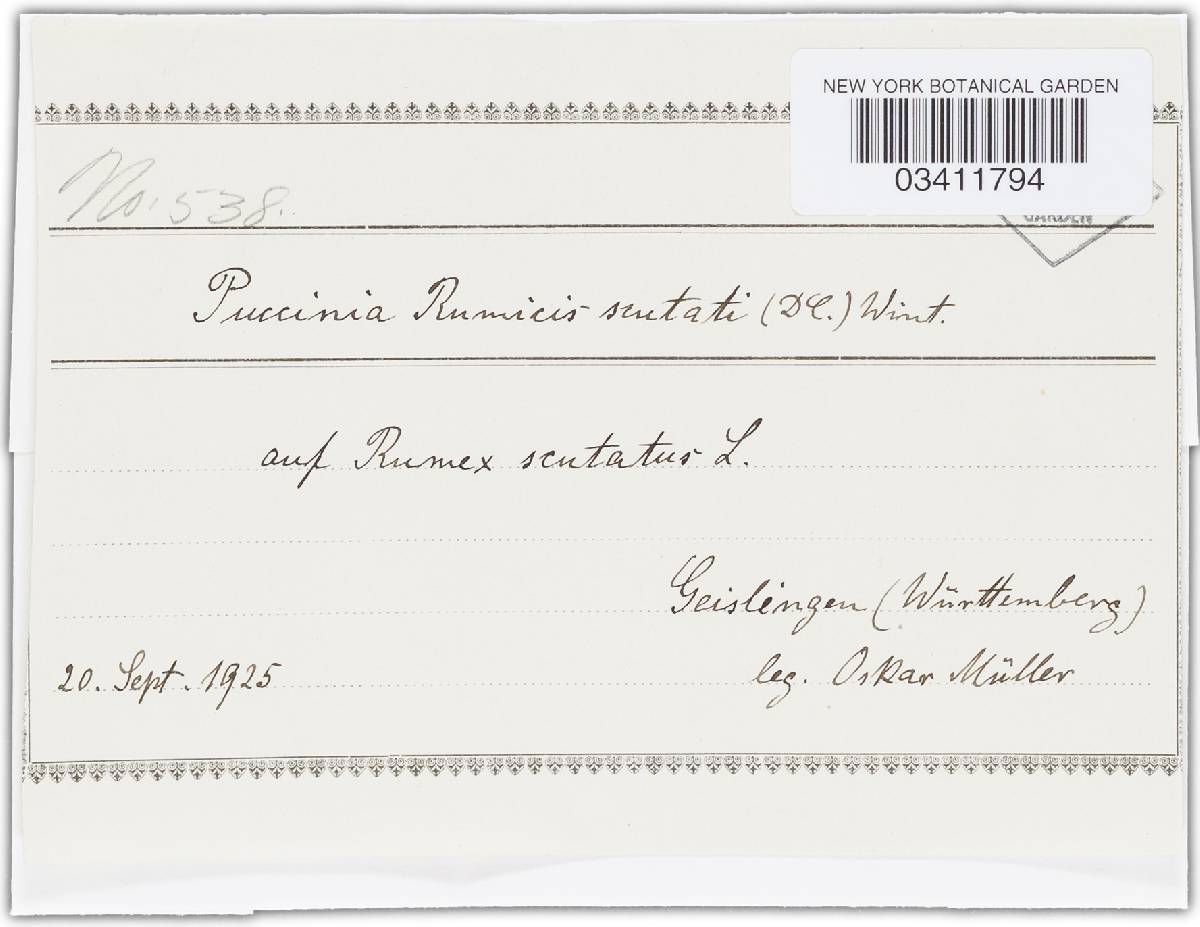 NEW YORK BOTANICAL GARDEN
03411794
GARDEN
No. 538.
Puccinia Rumicis scutati (DC.) Wint.
auf Rumex scutatus L.
Geislingen (Württemberg)
20. Sept. 1925 leg. Oskar Müller